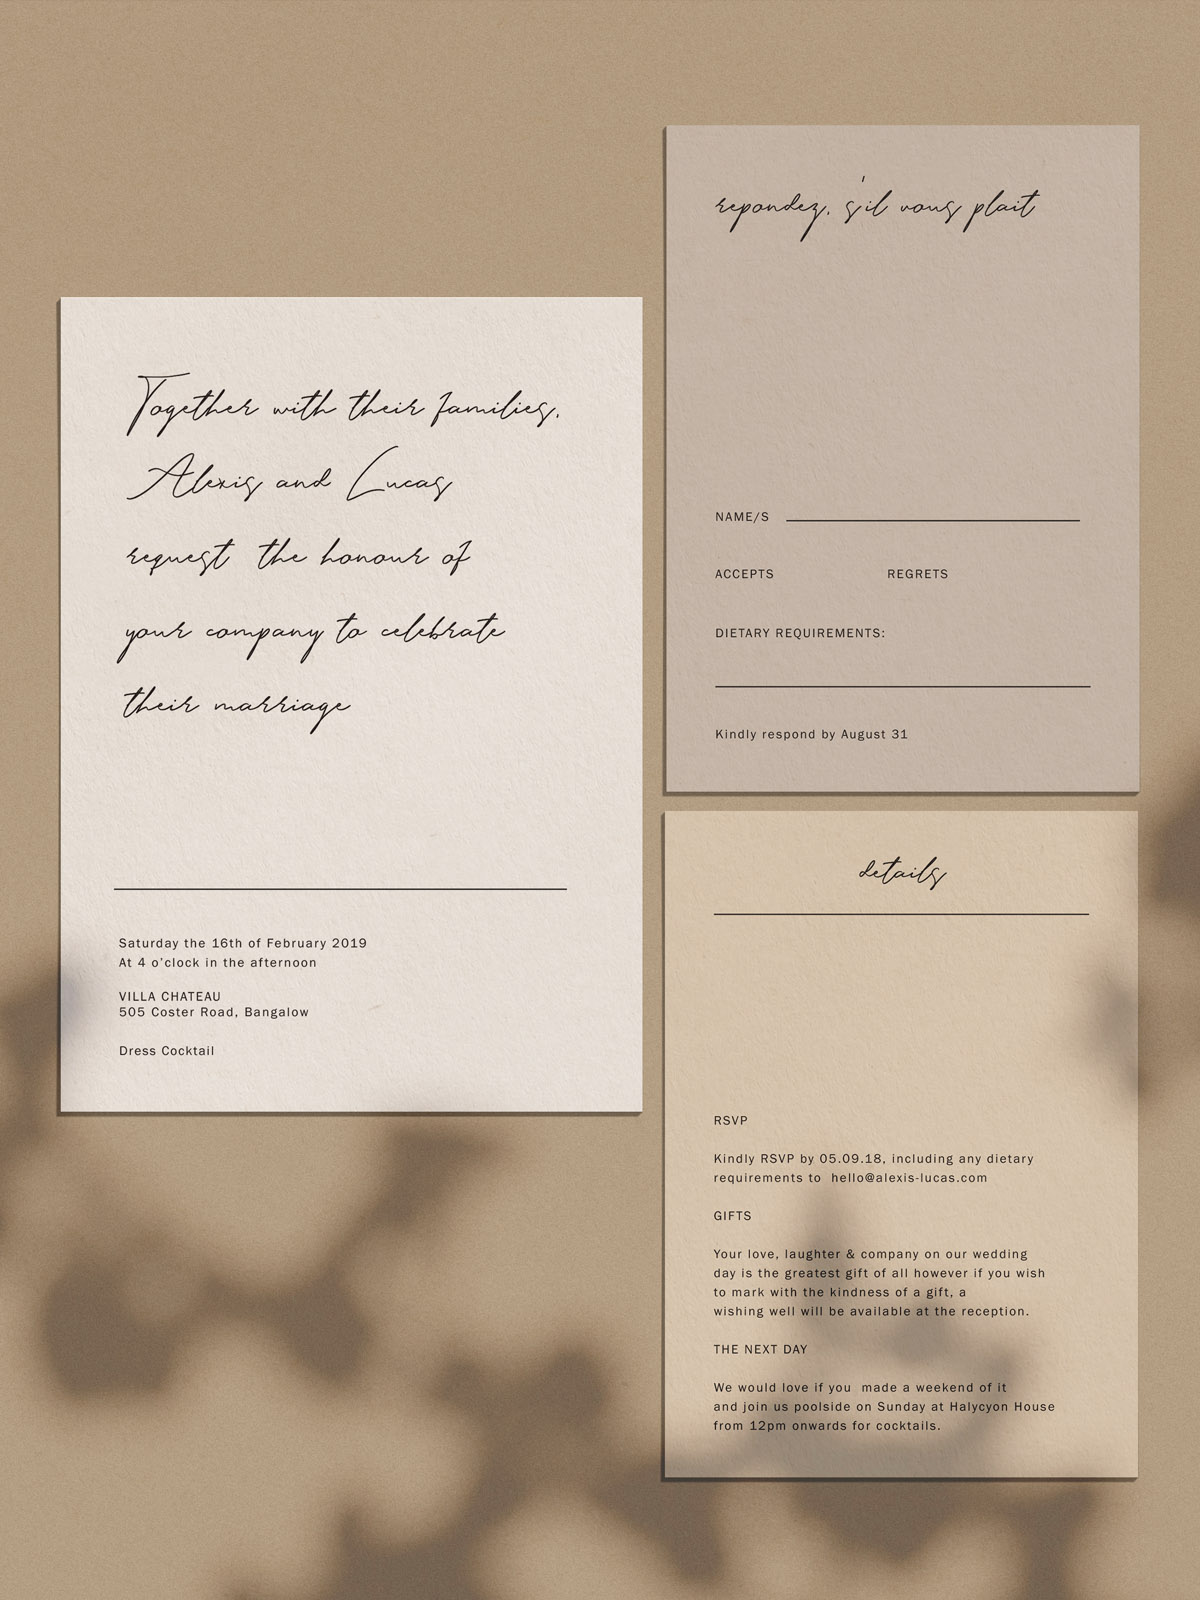 Together with their families,
Alexis and Lucas
request the honour of
your company to celebrate
their marriage
Saturday the 16th of February 2019
At 4 o'clock in the afternoon
VILLA CHATEAU
505 Coster Road, Bangalow
Dress Cocktail
repondez, s'il vous plait
NAME/S
ACCEPTS REGRETS
DIETARY REQUIREMENTS:
Kindly respond by August 31
details
RSVP
Kindly RSVP by 05.09.18, including any dietary
requirements to hello@alexis-lucas.com
GIFTS
Your love, laughter & company on our wedding
day is the greatest gift of all however if you wish
to mark with the kindness of a gift, a
wishing well will be available at the reception.
THE NEXT DAY
We would love if you made a weekend of it
and join us poolside on Sunday at Halycyon House
from 12pm onwards for cocktails.